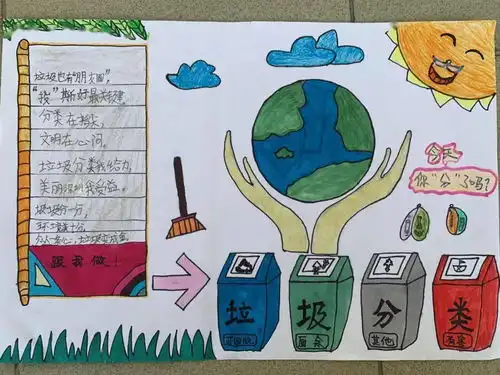 垃圾也有“朋友圈”，
“投”斯好最关键
分类在指尖
文明在心间。
垃圾分类我给力，
美丽深圳我受益。
垃圾分一分，
环境美十分
跟我做！
今天
你“分”了吗？
垃
圾
分
类
可回收
厨余
其他